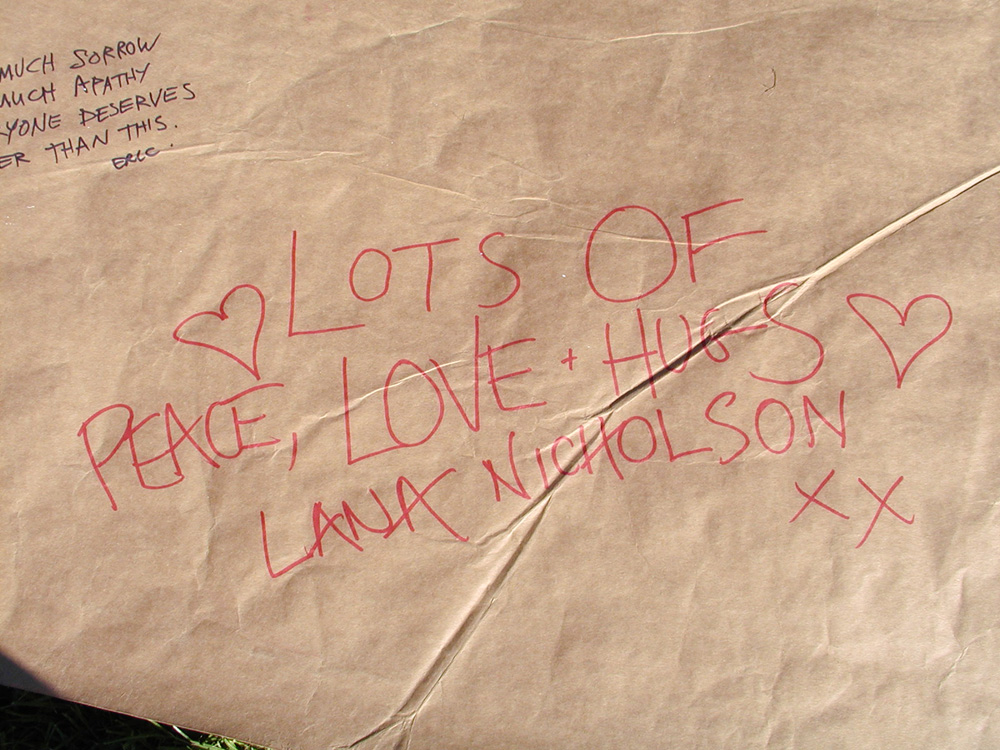 MUCH SORROW
MUCH APATHY
YONE DESERVES
ER THAN THIS.
ERIC.
LOTS OF
PEACE, LOVE + HUGS
LANA NICHOLSON
XX